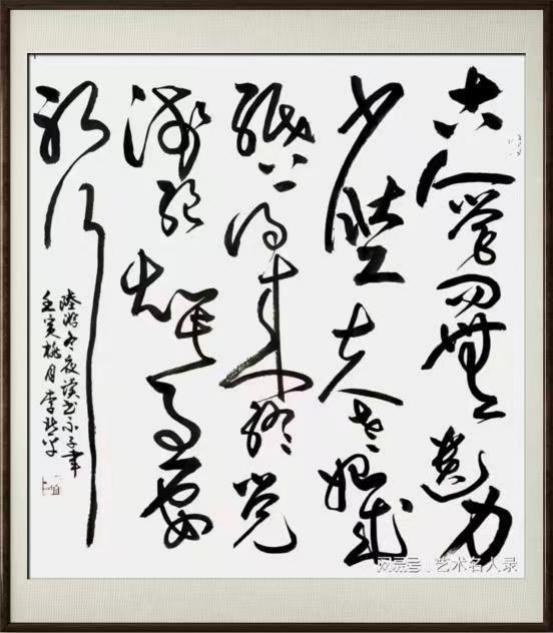 古人学问無遗力
少壮工夫老始成
纸上得来终觉
浅绝知此事要
躬行
陸游冬夜读书示子聿
壬寅桃月李
网易号 艺术名人录